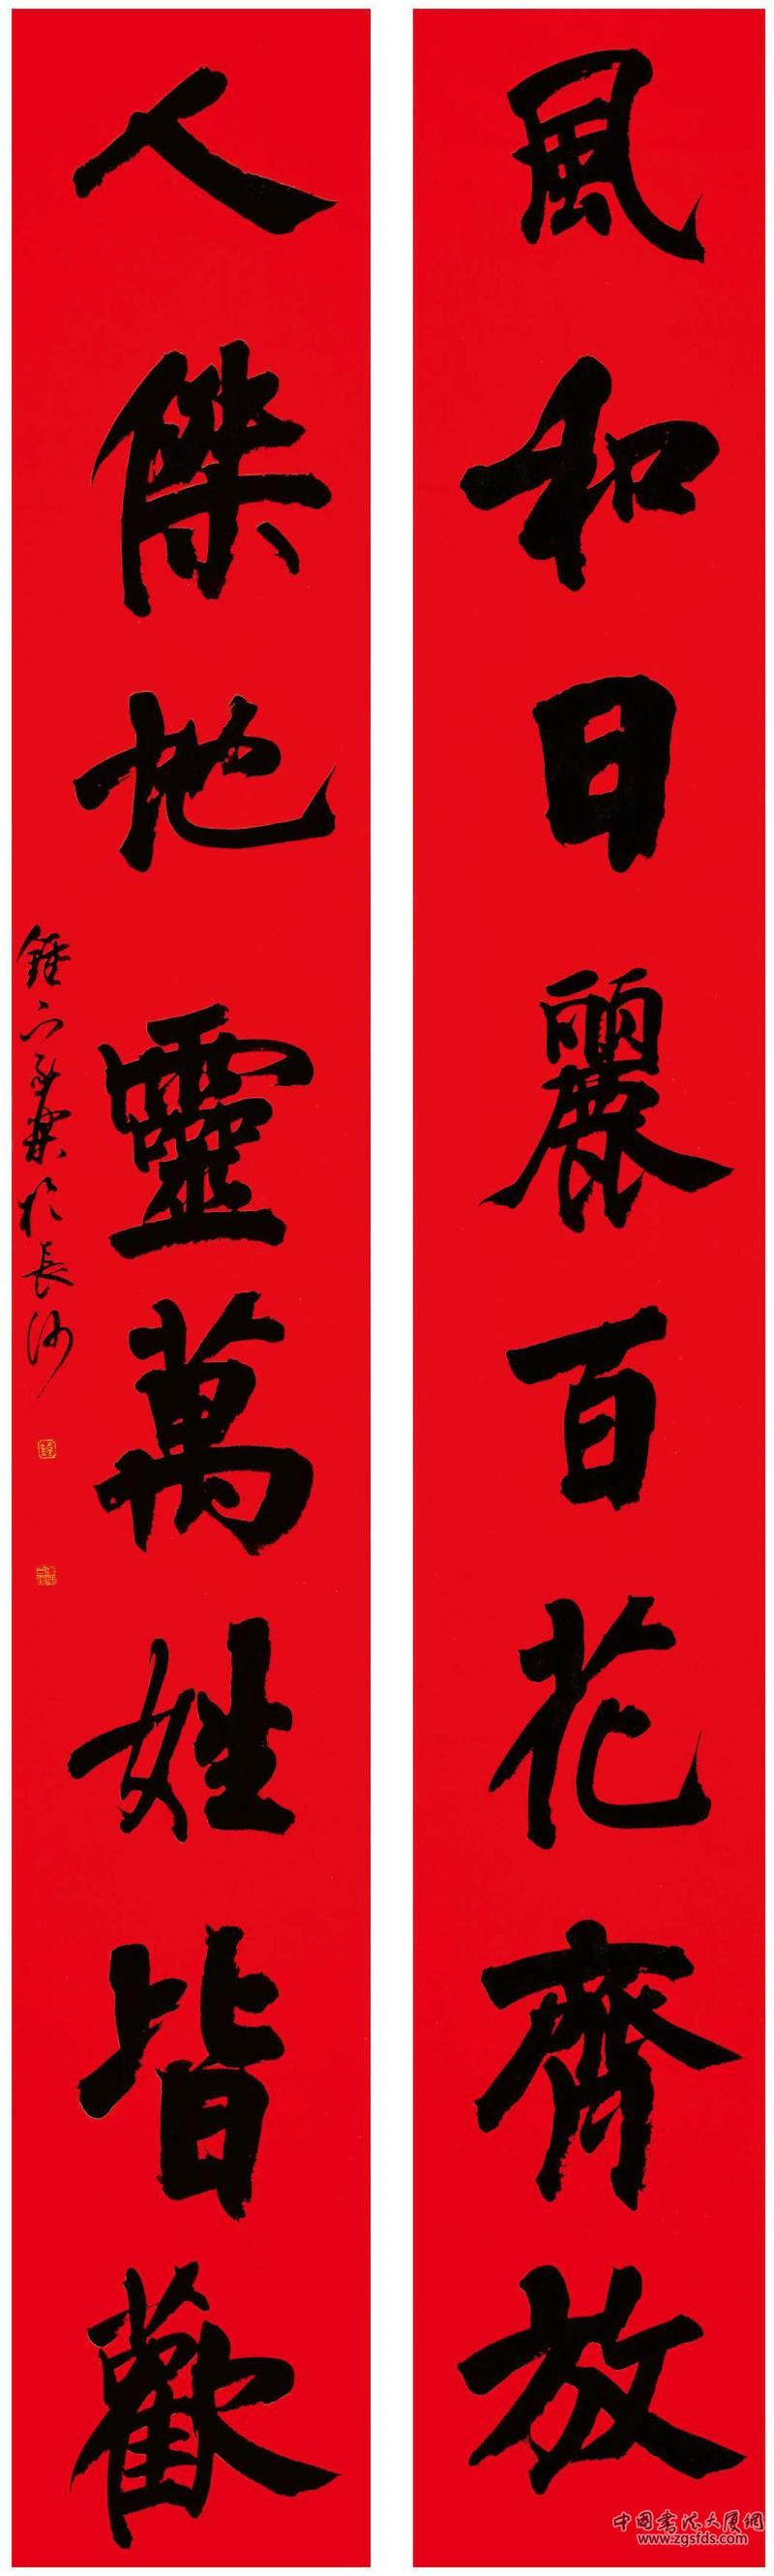 風和日麗百花齊放
人傑地靈萬姓皆歡
於長沙
中国書法大厦網
www.zgsfds.com